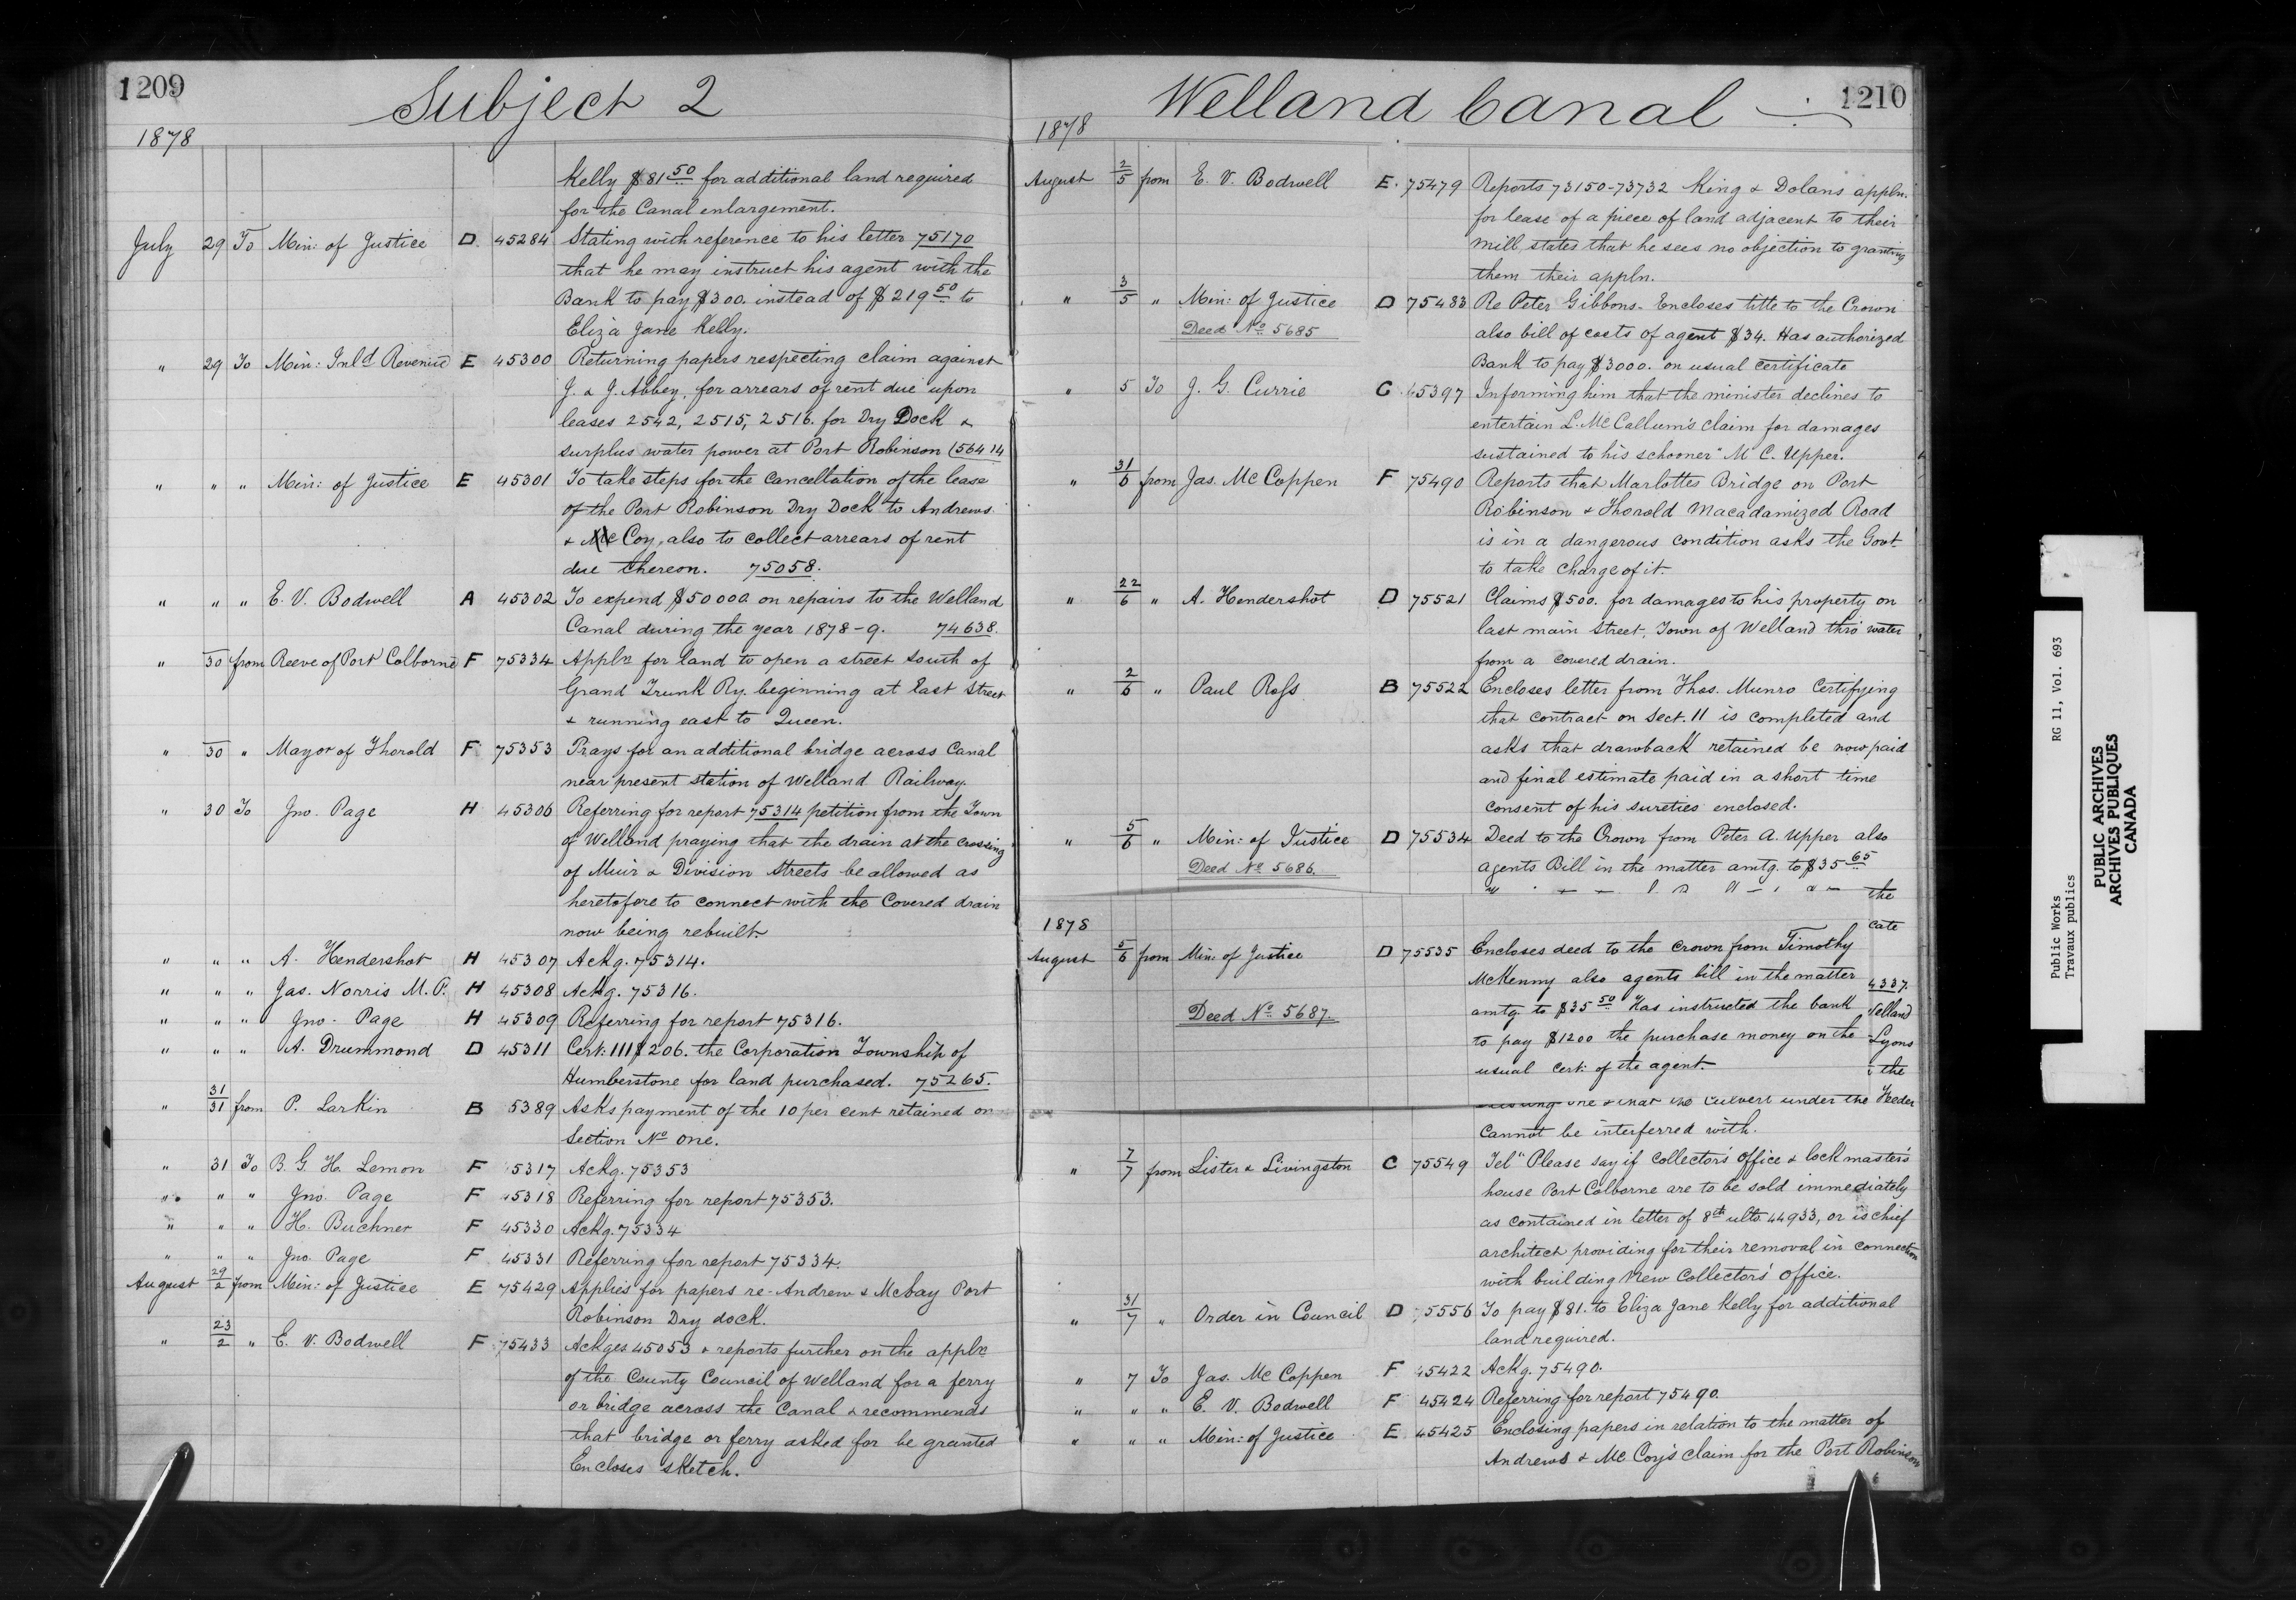 1209
Subject 2
1878
Kelly $81.50 for additional land required
for the Canal enlargement.
July 29 To Min: of Justice D. 45284 Stating with reference to his letter 75170
that he may instruct his agent with the
Bank to pay $300. instead of $219.50 to
Eliza Jane Kelly.
" 29 To Min: Inld. Revenue E 45300 Returning papers respecting claim against
J. & J. Abbey, for arrears of rent due upon
leases 2542, 2515, 2516. for Dry Dock &
surplus water power at Port Robinson (56414
" " " Min: of Justice E 45301 To take steps for the cancellation of the lease
of the Port Robinson Dry Dock to Andrews
& Mc Coy, also to collect arrears of rent
due thereon. 75058.
" " " E. V. Bodwell A 45302 To expend $50000 on repairs to the Welland
Canal during the year 1878-9. 74638.
" 30 from Reeve of Port Colborne F 75334 Appln for land to open a street South of
Grand Trunk Ry. beginning at East Street
& running east to Queen.
" 30 " Mayor of Thorold F 75353 Prays for an additional bridge across Canal
near present station of Welland Railway.
" 30 To Jno. Page H 45306 Referring for report 75314 petition from the Town
of Welland praying that the drain at the crossing
of Muir & Division Streets be allowed as
heretofore to connect with the Covered drain
now being rebuilt.
" " " A. Hendershot H 45307 Ackg. 75314.
" " " Jas. Norris M.P. H 45308 Ackg. 75316.
" " " Jno. Page H 45309 Referring for report 75316.
" " " A. Drummond D 45311 Cert: 111 $206. the Corporation Township of
Humberstone for land purchased. 75265.
" 31/31 from P. Larkin B 5389 Asks payment of the 10 per cent retained on
Section No. One.
" 31 To B. G. H. Lemon F 5317 Ackg. 75353
" " " Jno. Page F 45318 Referring for report 75353.
" " " H. Buchner F 45330 Ackg. 75334
" " " Jno. Page F 45331 Referring for report 75334.
August 29/2 from Min: of Justice E 75429 Applies for papers re- Andrew & Mcbay Port
Robinson Dry dock.
" 23/2 " E. V. Bodwell F 75433 Ackges 45053 & reports further on the appln
of the County Council of Welland for a ferry
or bridge across the Canal & recommends
that bridge or ferry asked for be granted
Encloses sketch.
1210
Welland Canal
1878
August 2/5 from E. V. Bodwell E. 75479 Reports 73150-73732 King & Dolans appln.
for lease of a piece of land adjacent to their
mill, states that he sees no objection to granting
them their appln.
" 3/5 " Min: of Justice D 75483 Re Peter Gibbons- Encloses title to the Crown
Deed No. 5685 also bill of costs of agent $34. Has authorized
Bank to pay $3000. on usual certificate
" 5 To J. G. Currie C 45397 Informing him that the minister declines to
entertain L. McCallum's claim for damages
sustained to his schooner "M C. Upper.
" 31/6 from Jas. Mc Coppen F 75490 Reports that Marlottes Bridge on Port
Robinson & Thorold Macadamized Road
is in a dangerous condition asks the Govt.
to take charge of it.
" 22/6 " A. Hendershot D 75521 Claims $500. for damages to his property on
East main Street, Town of Welland thro' water
from a covered drain.
" 2/6 " Paul Ross B 75522 Encloses letter from Thos. Munro certifying
that contract on Sect. 11 is completed and
asks that drawback retained be now paid
and final estimate paid in a short time
consent of his sureties enclosed.
" 5/6 " Min: of Justice D 75534 Deed to the Crown from Peter A. Upper also
Deed No. 5686. agents Bill in the matter amtg. to $35.65
the
1878 cate
August 5/6 from Min: of Justice D 75535 Encloses deed to the Crown from Timothy
McKenny also agents bill in the matter 4337.
Deed No. 5687. amtg. to $35.50 Has instructed the bank elland
to pay $1200 the purchase money on the Lyons
usual cert: of the agent. the
one & that the culvert under the Feeder
cannot be interferred with.
" 7/7 from Lister & Livingston C 75549 Tel" Please say if Collector's Office & lock master's
house Port Colborne are to be sold immediately
as contained in letter of 8th ulto 44933, or is chief
architect providing for their removal in connection
with building New Collectors' Office.
" 31/7 " Order in Council D 5556 To pay $81. to Eliza Jane Kelly for additional
land required.
" 7 To Jas. Mc Coppen F 45422 Ackg. 75490.
" " " E. V. Bodwell F 45424 Referring for report 75490.
" " " Min: of Justice E 45425 Enclosing papers in relation to the matter of
Andrews & Mc Coy's claim for the Port Robinson
Public Works RG 11, Vol. 693
Travaux publics
PUBLIC ARCHIVES
ARCHIVES PUBLIQUES
CANADA